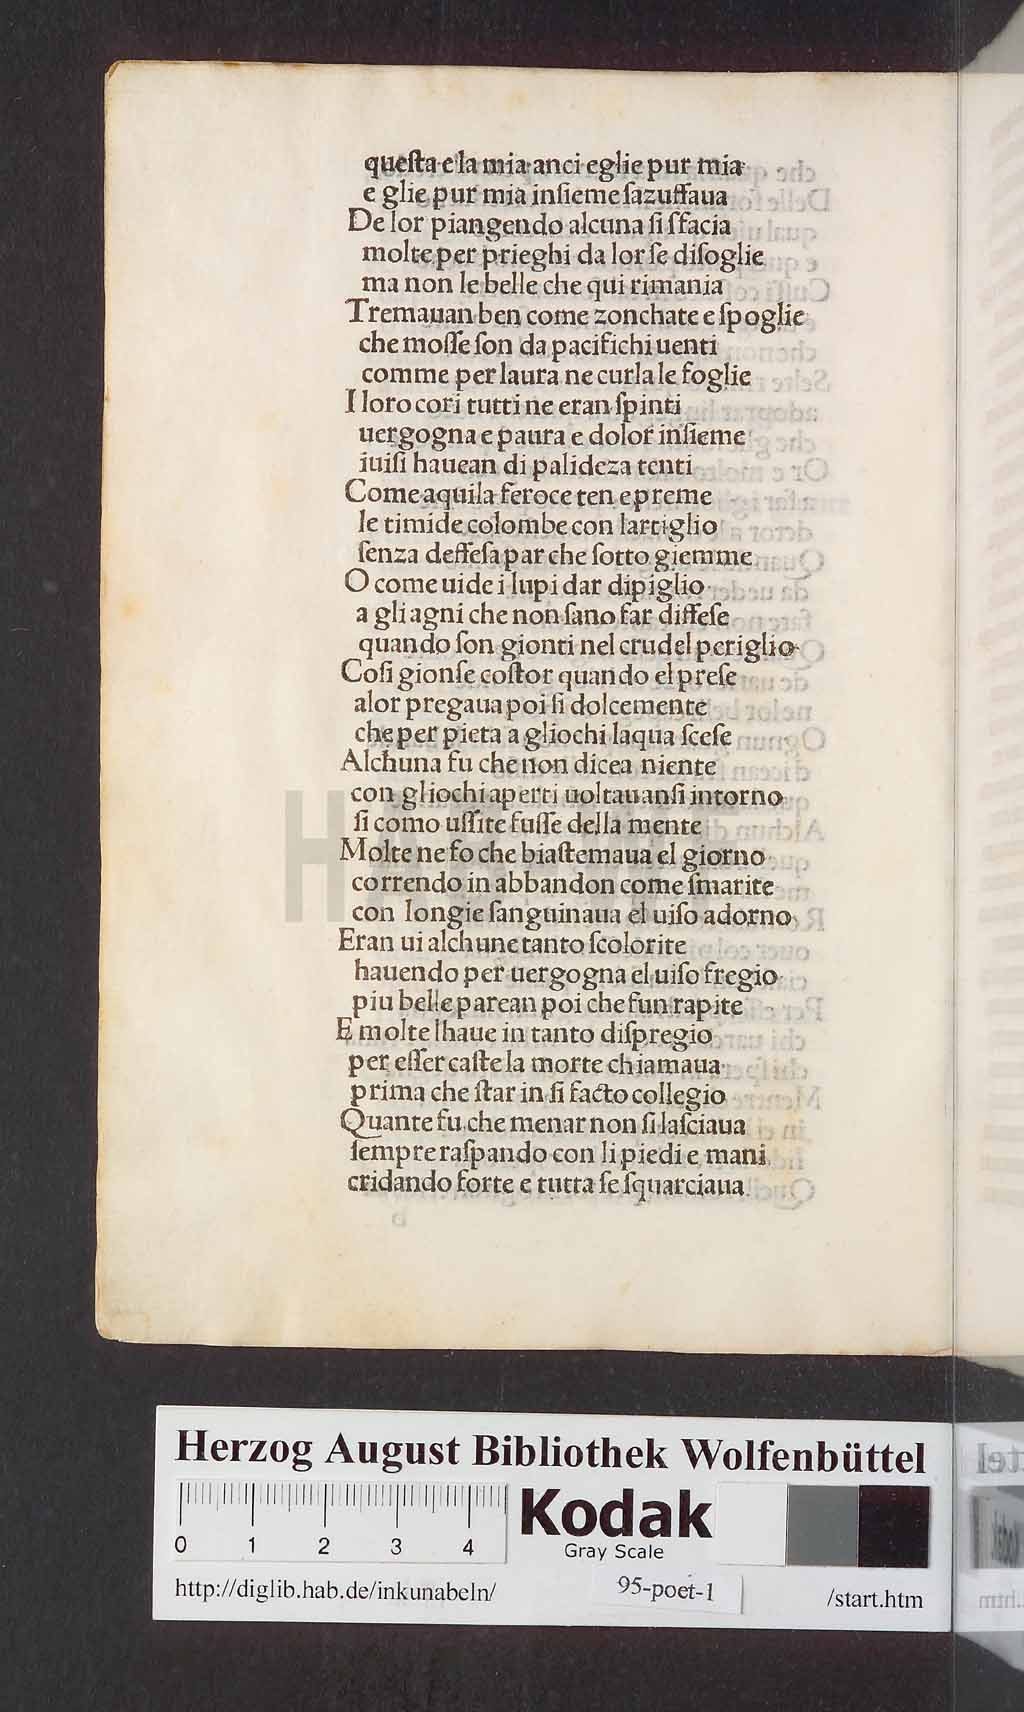 queſta e la mia anci eglie pur mia
e glie pur mia inſieme ſazuffaua
De lor piangendo alcuna ſi ſfacia
molte per prieghi da lor ſe diſoglie
ma non le belle che qui rimania
Tremauan ben come zonchate e ſpoglie
che moſſe ſon da pacifichi uenti
comme per laura ne curla le foglie
I loro cori tutti ne eran ſpinti
uergogna e paura e dolor inſieme
iuiſi hauean di palideza tenti
Come aquila feroce ten e preme
le timide colombe con lartiglio
ſenza deffeſa par che ſotto giemme
O come uide i lupi dar dipiglio
a gli agni che non ſano far diffeſe
quando ſon gionti nel crudel periglio
Coſi gionſe coſtor quando el preſe
alor pregaua poi ſi dolcemente
che per pieta a gliochi laqua ſceſe
Alchuna fu che non dicea niente
con gliochi aperti uoltauanſi intorno
ſi como uſſite fuſſe della mente
Molte ne fo che biaſtemaua el giorno
correndo in abbandon come ſmarite
con longie ſanguinaua el uiſo adorno
Eran ui alchune tanto ſcolorite
hauendo per uergogna el uiſo fregio
piu belle parean poi che fun rapite
E molte lhaue in tanto diſpregio
per eſſer caſte la morte chiamaua
prima che ſtar in ſi facto collegio
Quante fu che menar non ſi laſciaua
ſempre raſpando con li piedi e mani
cridando forte e tutta ſe ſquarciaua
HAB
Herzog August Bibliothek Wolfenbüttel
0 1 2 3 4
Kodak
Gray Scale
http://diglib.hab.de/inkunabeln/ 95-poet-1 /start.htm